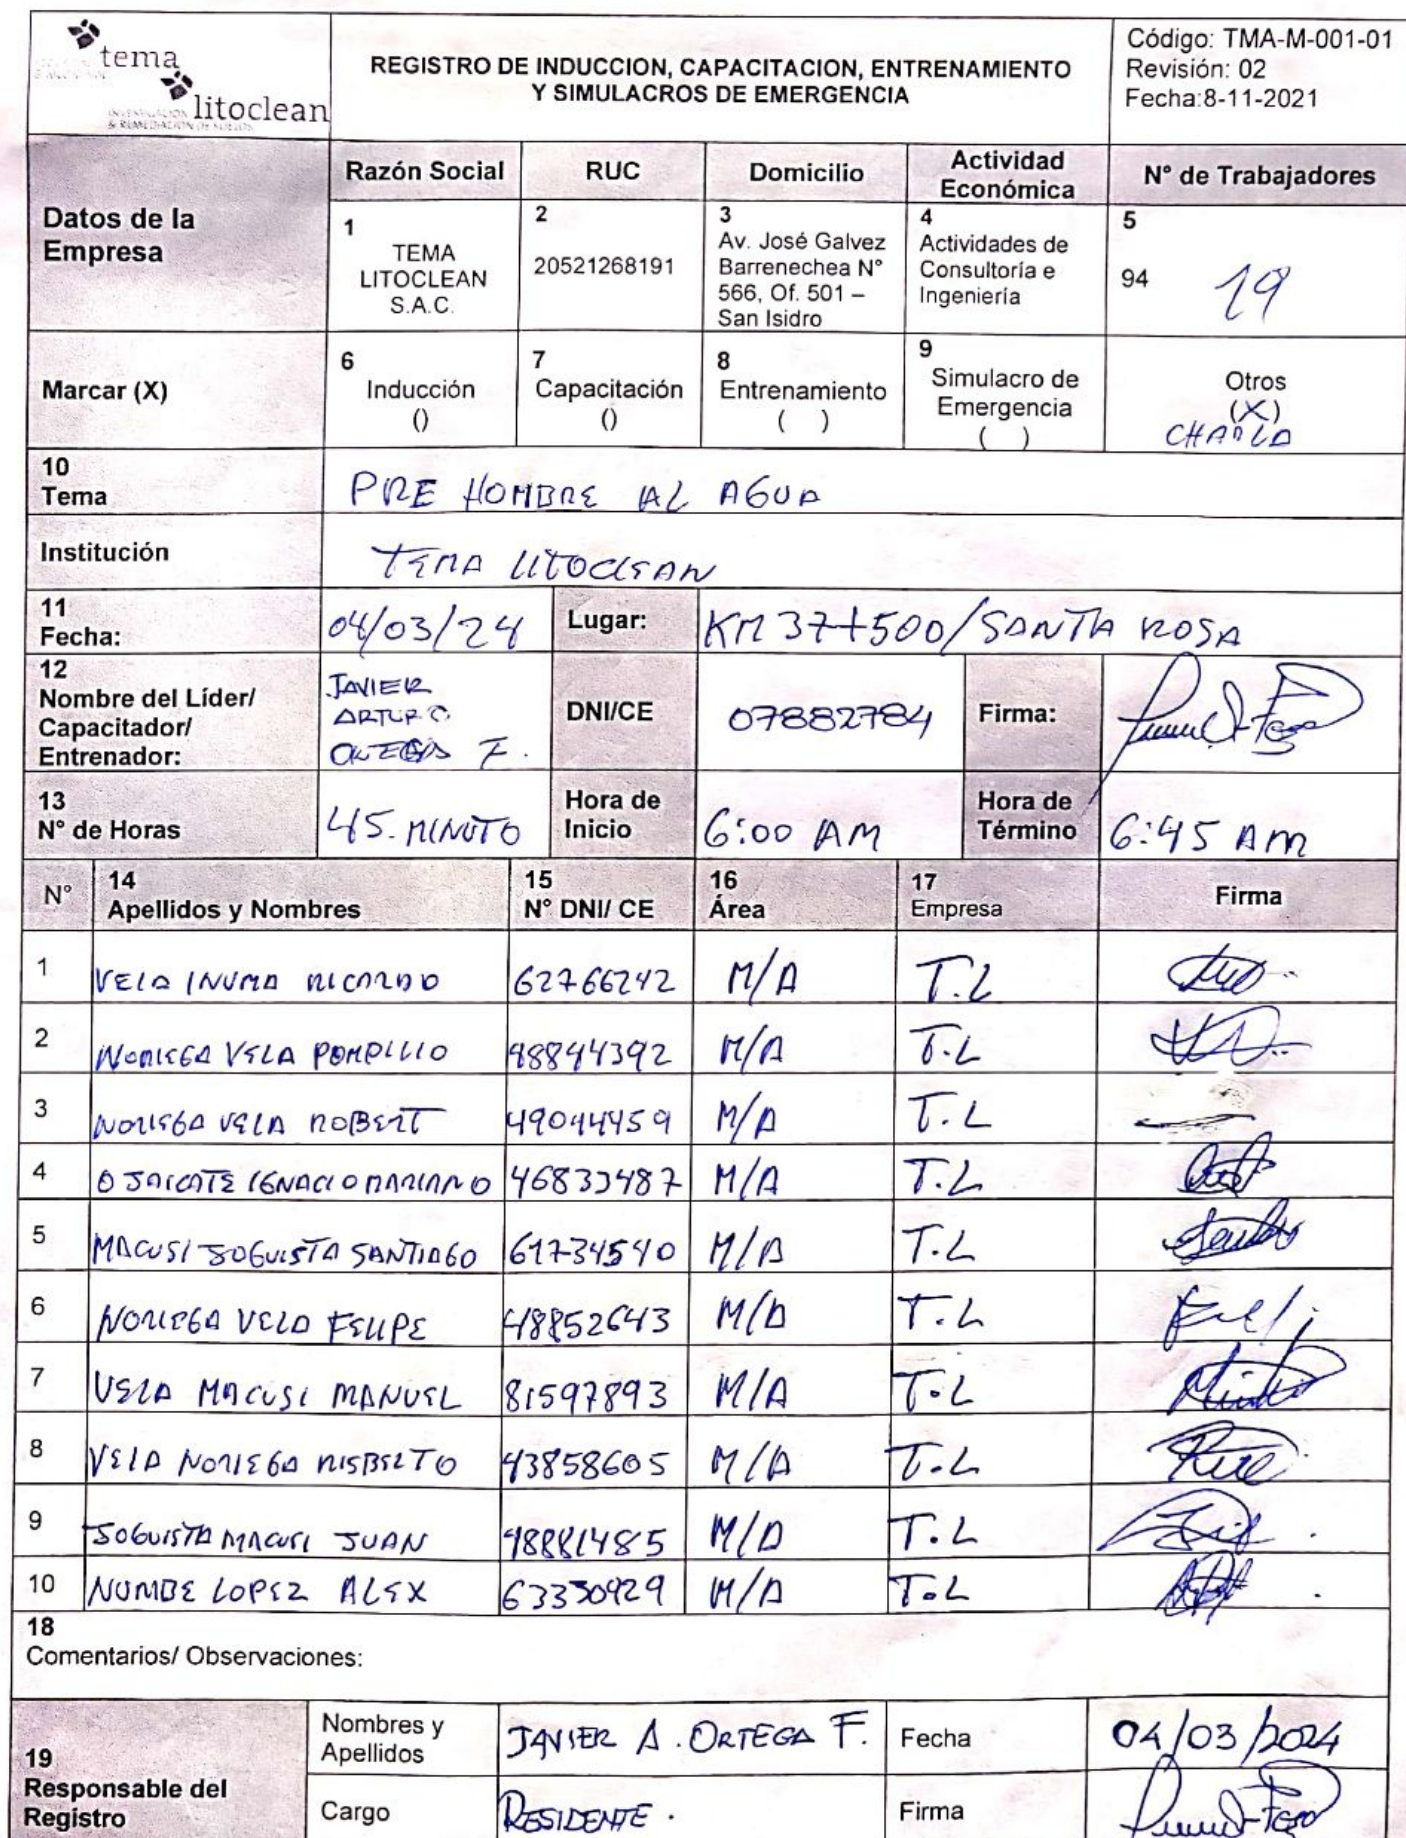 tema
litoclean
INVESTIGACIÓN
& REMEDIACIÓN DE SUELOS
REGISTRO DE INDUCCION, CAPACITACION, ENTRENAMIENTO
Y SIMULACROS DE EMERGENCIA
Código: TMA-M-001-01
Revisión: 02
Fecha:8-11-2021
Datos de la
Empresa
Razón Social
RUC
Domicilio
Actividad
Económica
N° de Trabajadores
1
TEMA
LITOCLEAN
S.A.C.
2
20521268191
3
Av. José Galvez
Barrenechea N°
566, Of. 501 –
San Isidro
4
Actividades de
Consultoría e
Ingeniería
5
94 19
Marcar (X)
6
Inducción
()
7
Capacitación
()
8
Entrenamiento
( )
9
Simulacro de
Emergencia
( )
Otros
(X)
CHARLA
10
Tema
PRE HOMBRE AL AGUA
Institución
TEMA LITOCLEAN
11
Fecha:
04/03/24
Lugar:
KM 37+500/SANTA ROSA
12
Nombre del Líder/
Capacitador/
Entrenador:
JAVIER
ARTURO
ORTEGA F.
DNI/CE
07882784
Firma:
13
N° de Horas
45. MINUTO
Hora de
Inicio
6:00 AM
Hora de
Término
6:45 AM
N°
14
Apellidos y Nombres
15
N° DNI/ CE
16
Área
17
Empresa
Firma
1 VELA INUMA RICARDO 62766242 M/A T.L
2 NORIEGA VELA POMPILIO 48844392 M/A T.L
3 NORIEGA VELA ROBERT 49044459 M/A T.L
4 OJAICATE IGNACIO MARIANO 46833487 M/A T.L
5 MACUSI JOGUISTA SANTIAGO 61734540 M/A T.L
6 NORIEGA VELA FELIPE 48852643 M/A T.L
7 VELA MACUSI MANUEL 81597893 M/A T.L
8 VELA NORIEGA RISBERTO 43858605 M/A T.L
9 JOGUISTA MACUSI JUAN 48881485 M/A T.L
10 NUMBE LOPEZ ALEX 63330929 M/A T.L
18
Comentarios/ Observaciones:
19
Responsable del
Registro
Nombres y
Apellidos
JAVIER A. ORTEGA F.
Fecha
04/03/2024
Cargo
RESIDENTE.
Firma